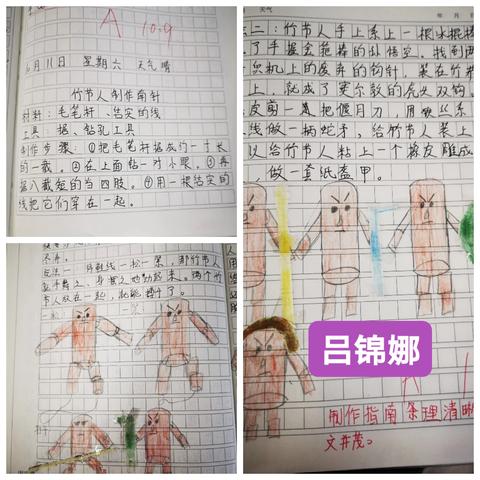 A 10.9
6月11日 星期六 天气晴
竹节人制作指针
材料：毛笔杆、结实的线
工具：锯、钻孔工具
制作步骤：①把毛笔杆锯成约一寸长
的一截。②在上面钻一对小眼，③再
锯八截短的当四肢。④用一根结实的
线把它们穿在一起。
不弄。
一松一紧，那竹节人
手舞之、身摆之地动起来。两个竹
节人放在一起，就能搏斗了。
天气
年 月 日
二：竹节人手上系上一根冰棍棒
了手握金箍棒的孙悟空。找到两
织机上的废弃的钩针，装在竹
上，就成了窦尔敦的虎头双钩。
皮剪一
线做一柄蛇矛，给竹节人装上
以给竹节人粘上一个橡皮雕成
，做一套纸盔甲。
吕锦娜
A
制作指南条理清晰
文并茂。